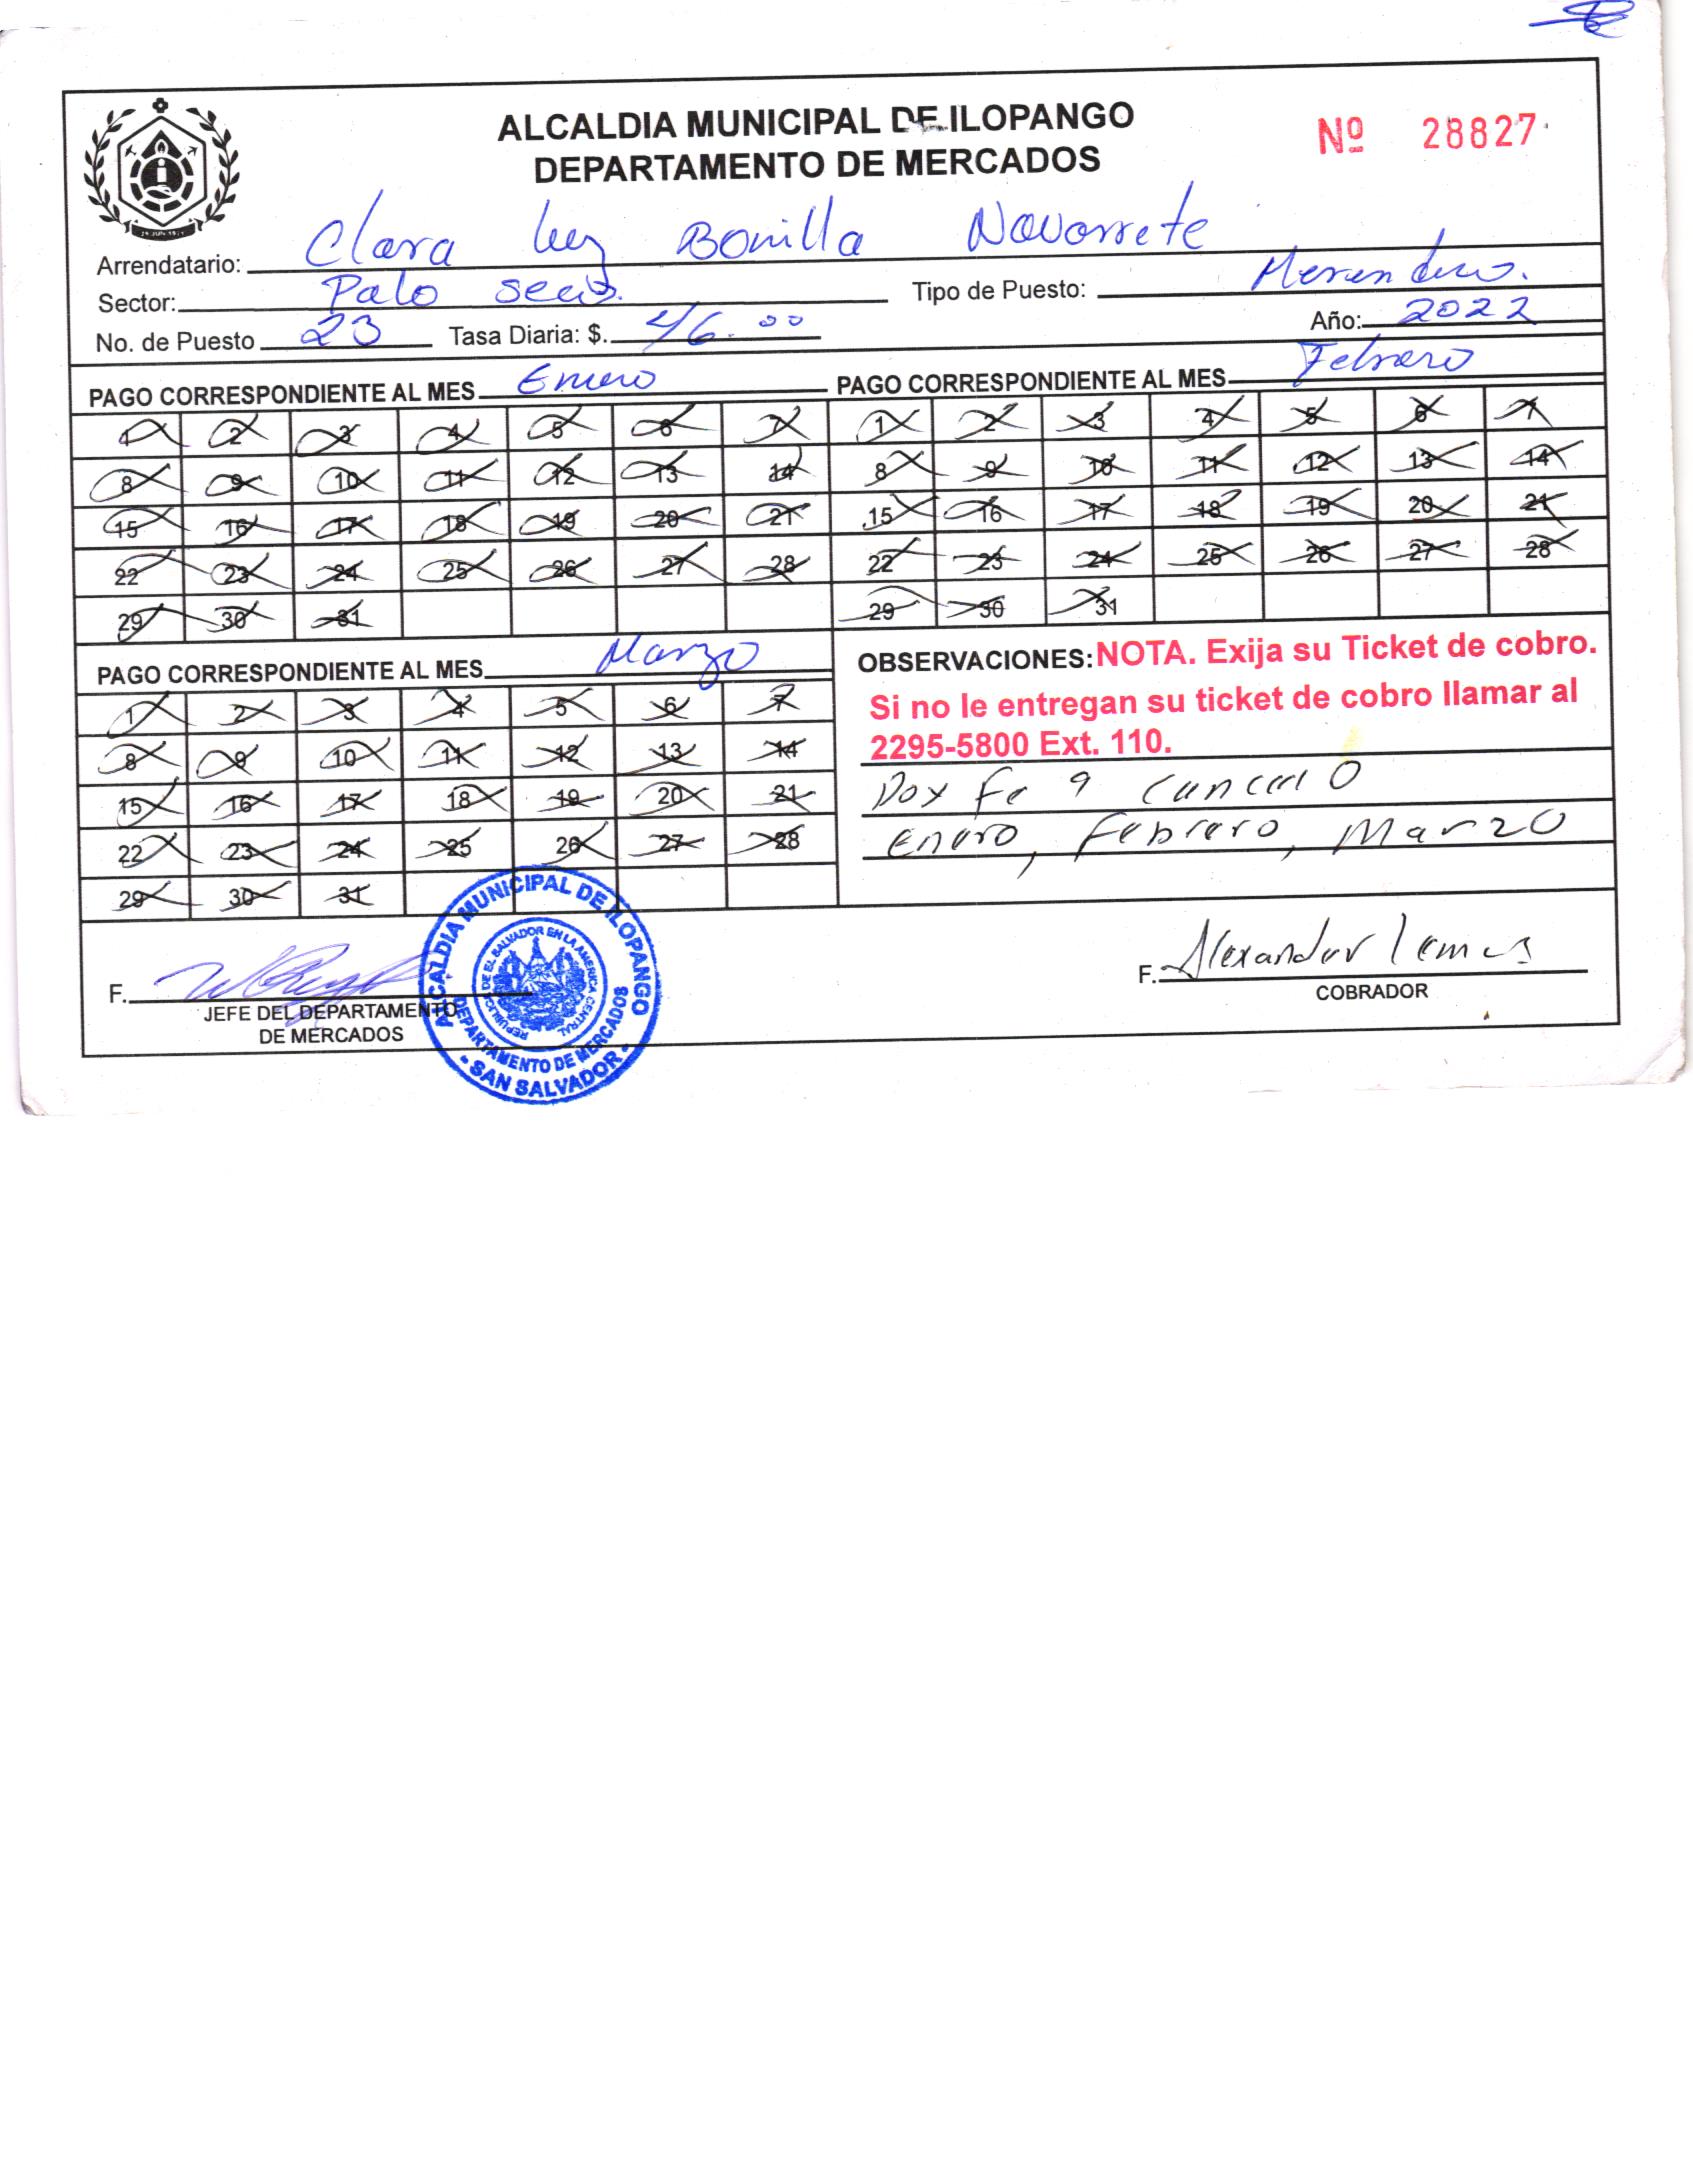 ALCALDIA MUNICIPAL DE ILOPANGO
DEPARTAMENTO DE MERCADOS
Nº 28827
Arrendatario: Clara Luz Bonilla Navarrete
Sector: Palo seco.
Tipo de Puesto:
No. de Puesto 23 Tasa Diaria: $. 46.00
Año: 2022
PAGO CORRESPONDIENTE AL MES Enero
1 2 3 4 5 6 7
8 9 10 11 12 13 14
15 16 17 18 19 20 21
22 23 24 25 26 27 28
29 30 31
PAGO CORRESPONDIENTE AL MES Febrero
1 2 3 4 5 6 7
8 9 10 11 12 13 14
15 16 17 18 19 20 21
22 23 24 25 26 27 28
29 30 31
PAGO CORRESPONDIENTE AL MES Marzo
1 2 3 4 5 6 7
8 9 10 11 12 13 14
15 16 17 18 19 20 21
22 23 24 25 26 27 28
29 30 31
OBSERVACIONES: NOTA. Exija su Ticket de cobro.
Si no le entregan su ticket de cobro llamar al
2295-5800 Ext. 110.
Doy fe q cancelo
Enero, Febrero, Marzo
F.
JEFE DEL DEPARTAMENTO
DE MERCADOS
ALCALDIA MUNICIPAL DE ILOPANGO
REPUBLICA DE EL SALVADOR EN LA AMERICA CENTRAL
DEPARTAMENTO DE MERCADOS
SAN SALVADOR
F. Alexander Lemus
COBRADOR